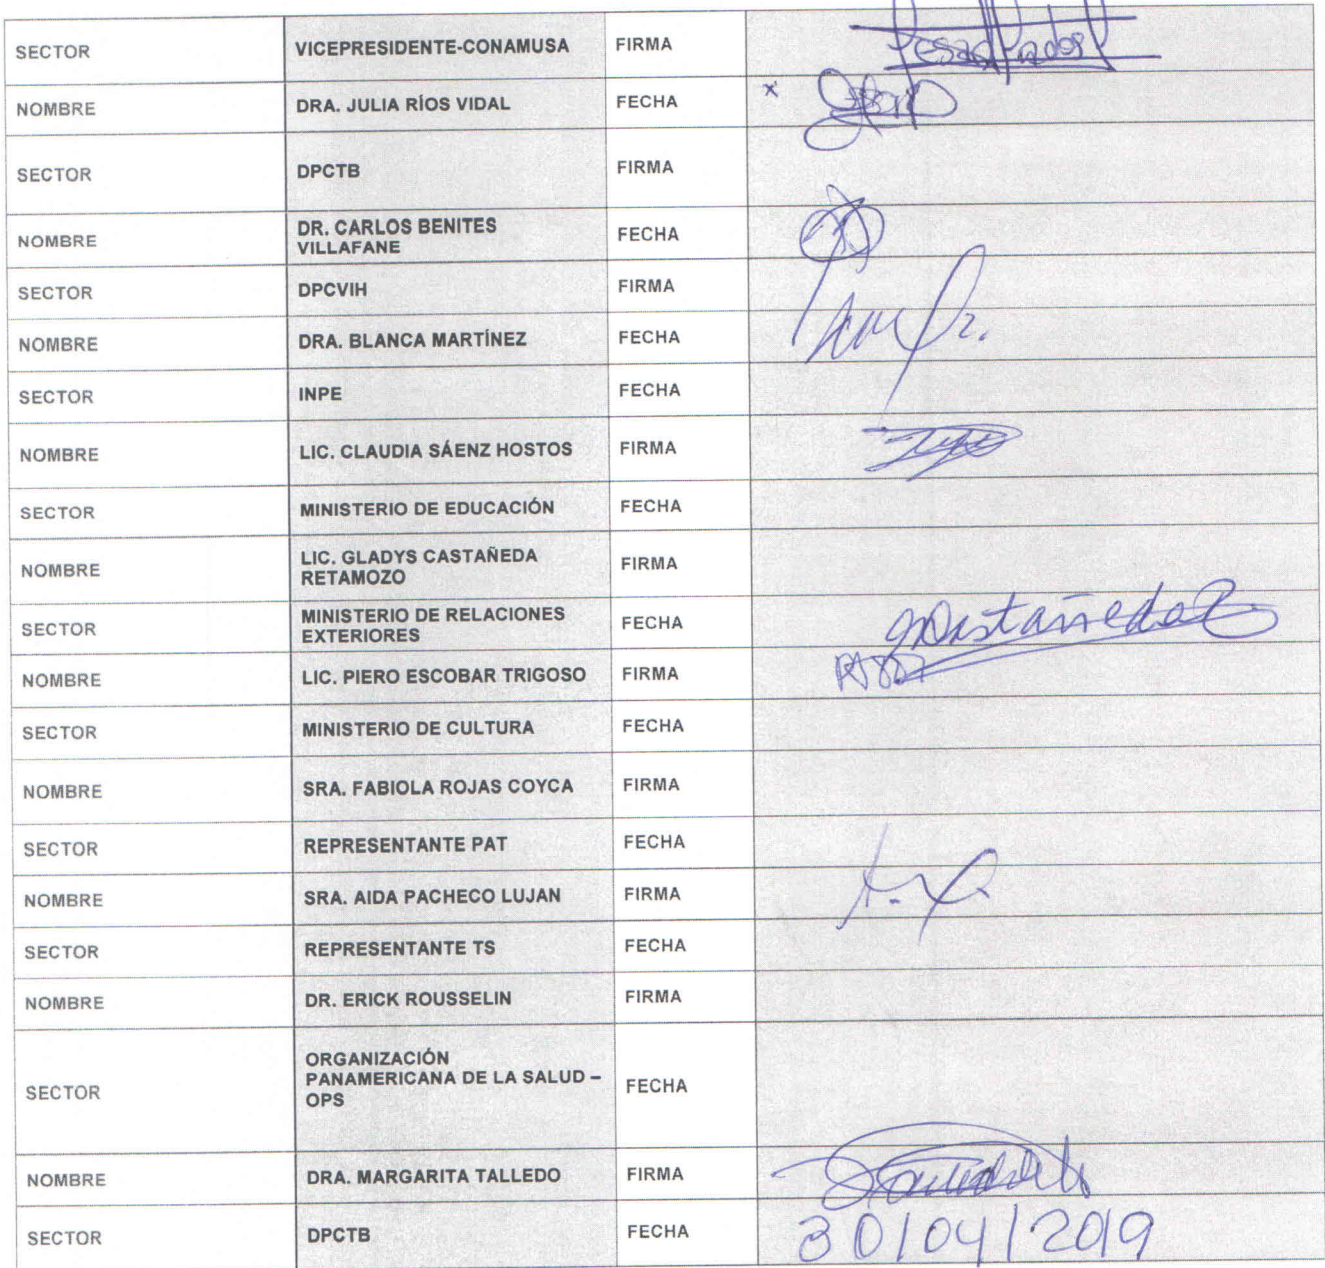 SECTOR VICEPRESIDENTE-CONAMUSA FIRMA
NOMBRE DRA. JULIA RÍOS VIDAL FECHA x
SECTOR DPCTB FIRMA
NOMBRE DR. CARLOS BENITES VILLAFANE FECHA
SECTOR DPCVIH FIRMA
NOMBRE DRA. BLANCA MARTÍNEZ FECHA
SECTOR INPE FECHA
NOMBRE LIC. CLAUDIA SÁENZ HOSTOS FIRMA
SECTOR MINISTERIO DE EDUCACIÓN FECHA
NOMBRE LIC. GLADYS CASTAÑEDA RETAMOZO FIRMA
SECTOR MINISTERIO DE RELACIONES EXTERIORES FECHA
NOMBRE LIC. PIERO ESCOBAR TRIGOSO FIRMA
SECTOR MINISTERIO DE CULTURA FECHA
NOMBRE SRA. FABIOLA ROJAS COYCA FIRMA
SECTOR REPRESENTANTE PAT FECHA
NOMBRE SRA. AIDA PACHECO LUJAN FIRMA
SECTOR REPRESENTANTE TS FECHA
NOMBRE DR. ERICK ROUSSELIN FIRMA
SECTOR ORGANIZACIÓN PANAMERICANA DE LA SALUD – OPS FECHA
NOMBRE DRA. MARGARITA TALLEDO FIRMA
SECTOR DPCTB FECHA 30/04/2019